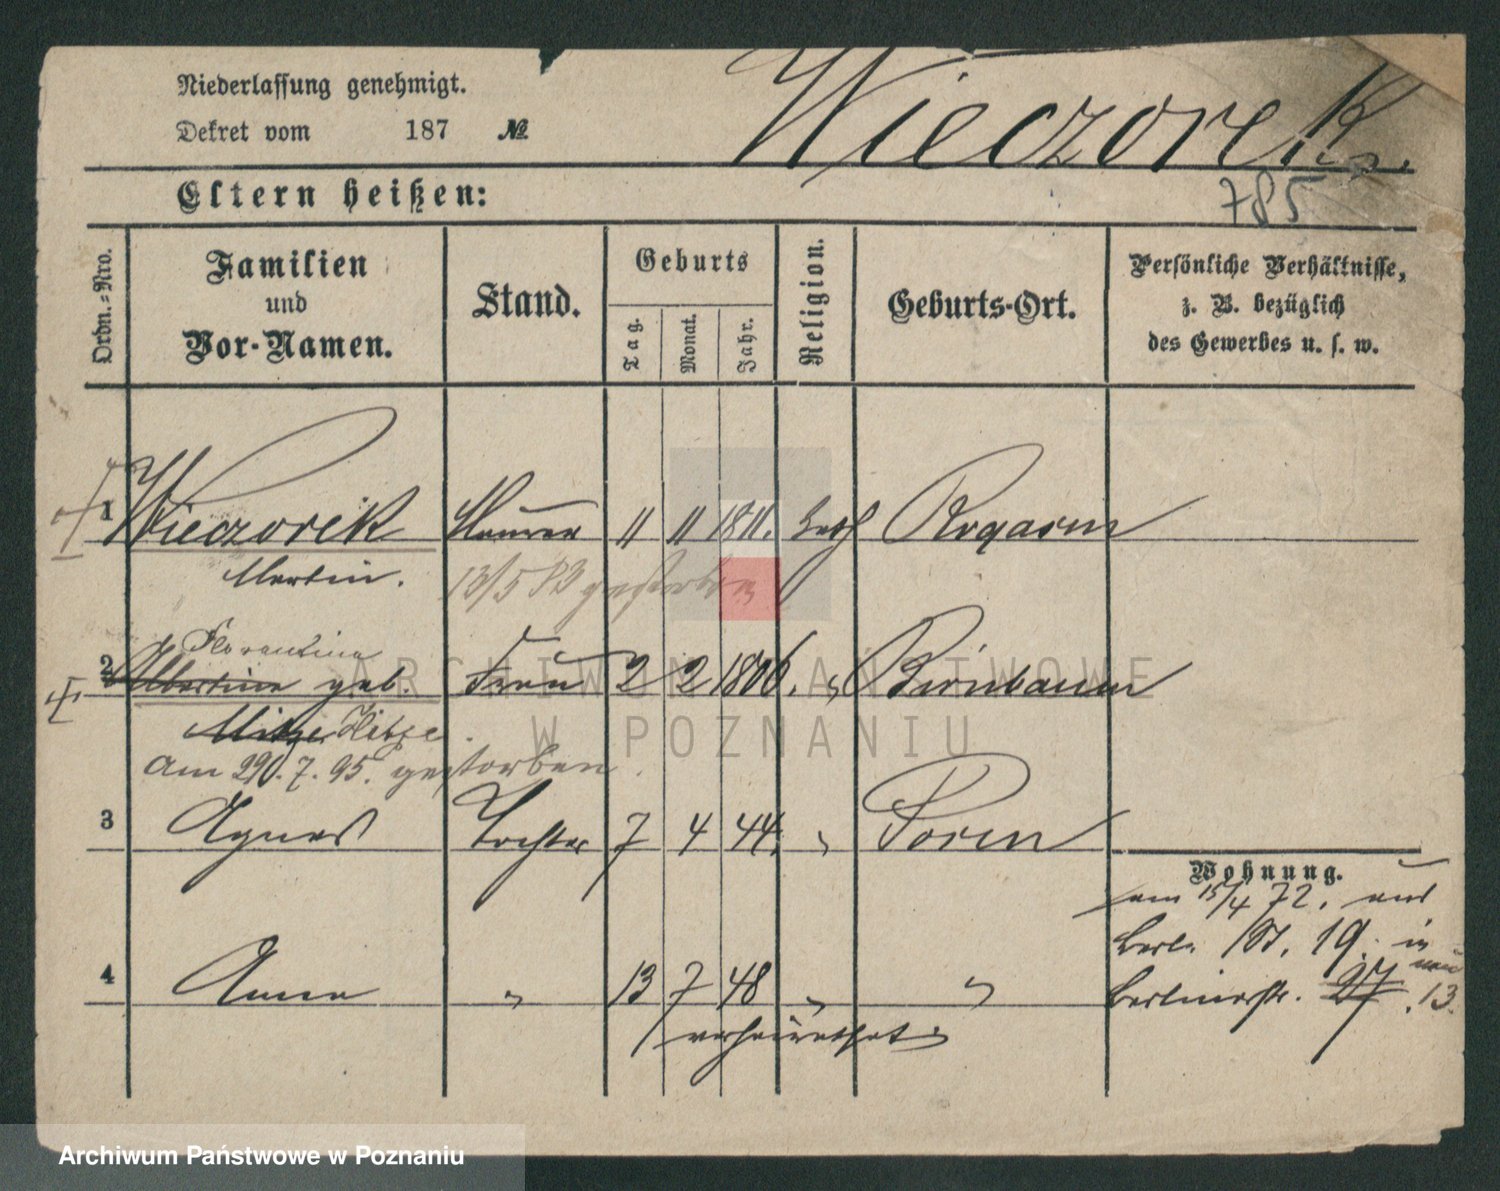 Niederlassung genehmigt.
Dekret vom 187 №
Wieczorek.
785
Eltern heißen:
Ordn.-Nro.
Familien und Vor-Namen.
Stand.
Geburts
Tag.
Monat.
Jahr.
Religion.
Geburts-Ort.
Persönliche Verhältnisse,
z. B. bezüglich
des Gewerbes u. s. w.
1 Wieczorek Maurer 11 11 1811. kath Rogasen
Martin.
13/5 83 gestorben
Florentina
2 Albertine geb. Frau 2 2 1806. " Birnbaum
Mitze Hitze.
am 29. 7. 95. gestorben.
3 Agnes Tochter 7 4 44. " Posen
4 Anna " 13 7 48 " "
verheirathet
Wohnung.
am 15/4 72. aus
19. in
Berlinerstr. 27. 13.
ARCHIWUM PAŃSTWOWE
W POZNANIU
Archiwum Państwowe w Poznaniu